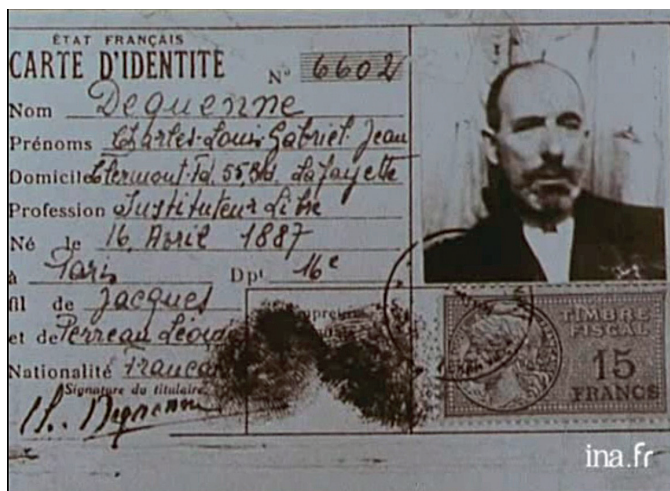 ÉTAT FRANÇAIS
CARTE D'IDENTITÉ Nº 6602
Nom Dequenne
Prénoms Charles-Louis-Gabriel-Jean
Domicile Clermont-Fd. 55, Bd. Lafayette
Profession Instituteur Libre
Né le 16 Avril 1887
à Paris Dpt 16e
fil de Jacques
et de Perreau
Nationalité
Signature du titulaire
TIMBRE FISCAL
15
FRANCS
ina.fr